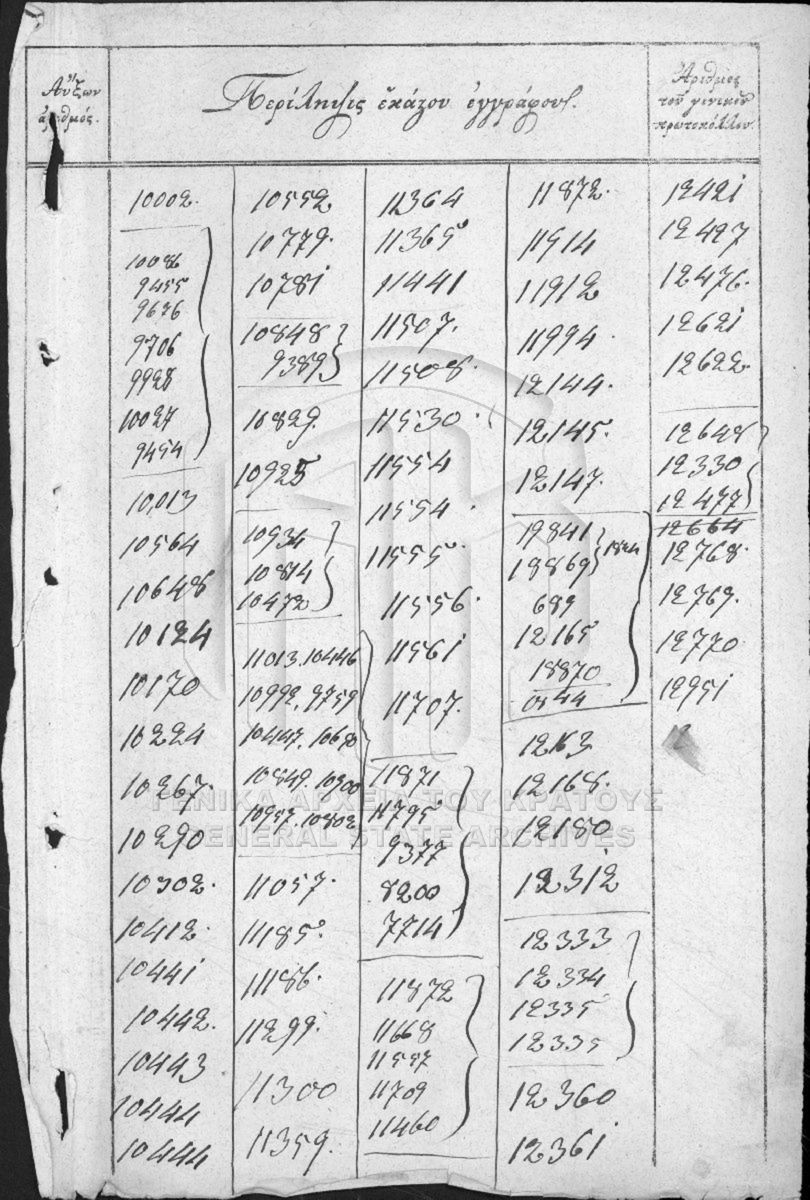 Αὔξων
ἀριθμός.
Περίληψις ἑκάστου ἐγγράφου.
Ἀριθμος
τοῦ γενικοῦ
πρωτοκόλλου.
10002.
10086
9455
9626
9706
9928
10027
9454
10,013
10564
10648
10124
10170
10224
10267.
10290
10302.
10412.
10441
10442.
10443
10444
10444
10552
10779.
10781
10848
9389
10829.
10925
10934
10814
10472
11013.10446
10992,9759
10447.10680
10849.10300
10957.10802
11057.
11185.
11186.
11299.
11300
11359.
11364
11365
11441
11507.
11508.
11530.
11554
11554.
11555
11556.
11561
11707.
11831
11795
9377
8200
7714
11872
11668
11557
11709
11460
11872.
11914
11912
11994.
12144.
12145.
12147.
19841
18869
1824
689
12165
18870
0544
1263
12168.
12180
12312
12333
12334
12335
12335
12360
12361
12421
12427
12476.
12621
12622.
12648
12330
12477
12664
12768.
12769.
12770
12951
ΓΕΝΙΚΑ ΑΡΧΕΙΑ ΤΟΥ ΚΡΑΤΟΥΣ
GENERAL STATE ARCHIVES